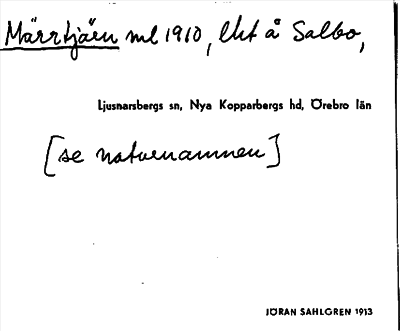 Märrtjäen ml 1910, lht å Salbo,
Ljusnarsbergs sn, Nya Kopparbergs hd, Örebro län
[se naturnamnen]
JÖRAN SAHLGREN 1913